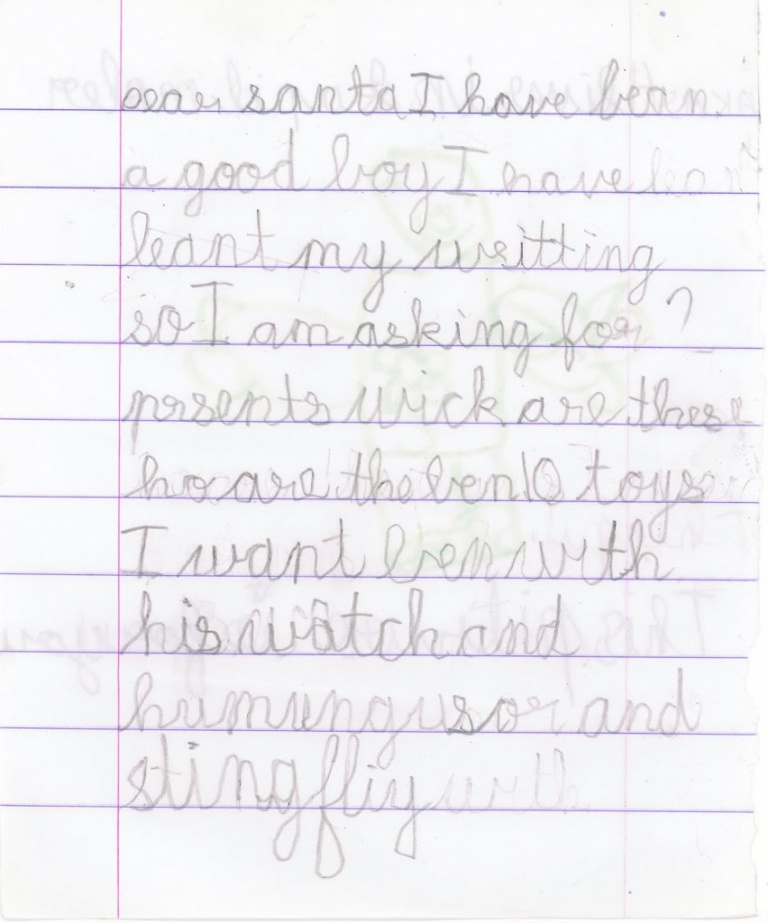 Dear santa I have bean
a good boy I have
leant my writting
so I am asking for ?
prsents wick are these
ho are the ben 10 toys
I want ben with
his watch and
humungusor and
stingfliy with